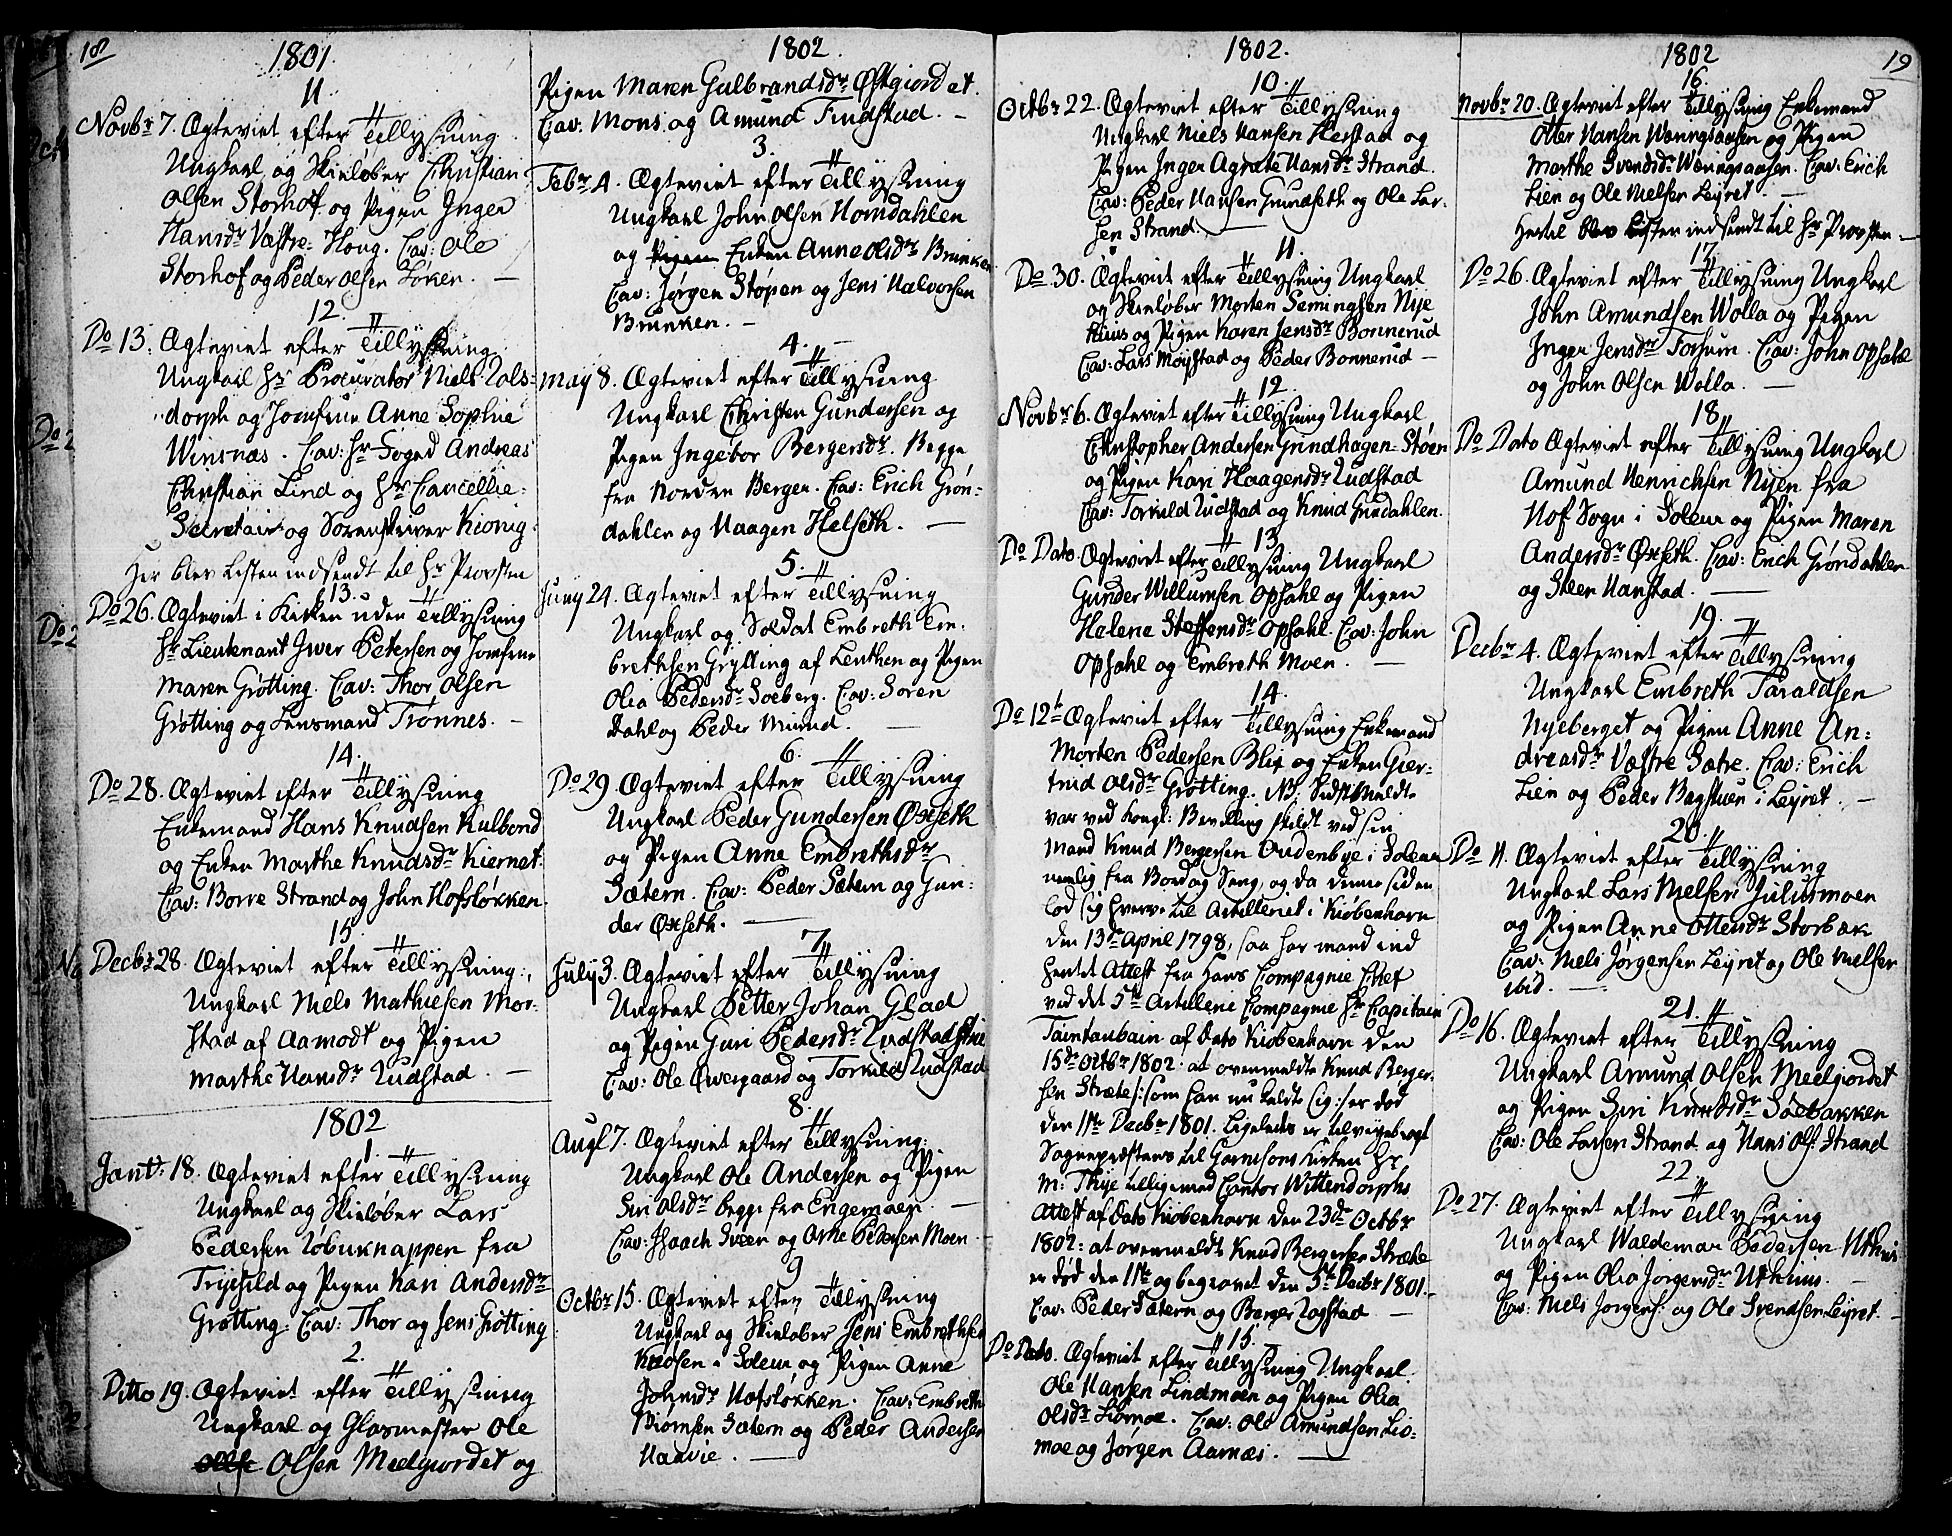 18
1801.
11.
Novbr 7. Ægteviet efter Tillysning
Ungkarl og Skieløber Christian
Olsen Storhof og Pigen Inger
Hansdr Væstre-Houg. Cav: Ole
Storhof og Peder Olsen Løken. —
12.
Do 13. Ægteviet efter Tillysning
Ungkarl Hr Procurator Niels
dorph og Jomfrue Anne Sophie
Winsnæs. Cav: Hr Foged Andreas
Christian Lind og Hr Cancellie-
Secretair og Sorenskriver Kionig.
Her blev Listen indsendt til Hr Provsten
13.
Do 26. Ægteviet i Kirken uden Tillysning
Hr Lieutenant Iwer Petersen og Jomfrue
Maren Grøtting. Cav: Thor Olsen
Grøtting og Lensmand Trønnes. —
14.
Do 28. Ægteviet efter Tillysning
Enkemand Hans Knudsen Kulbond
og Enken Marthe Knudsdr Kiernet.
Cav: Borre Strand og John Hofsløkken.
15.
Decbr 28. Ægteviet efter Tillysning.
Ungkarl Niels Mathiesen Mor-
stad af Aamodt og Pigen
Marthe Hansdr Rudstad. —
1802
1.
Janv: 18. Ægteviet efter Tillysning
Ungkarl og Skieløber Lars
Pedersen fra
Trysild og Pigen Kari Andersdr
Grøtting. Cav: Thor og Jens Grøtting
2.
Ditto 19. Ægteviet efter Tillysning
Ungkarl og Glasmester Ole
Olsen Meelgiordet og
1802.
Pigen Maren Gulbrandsdr Østgiordet.
Cav: Mons og Amund Findstad. —
3.
Febr 4. Ægteviet efter Tillysning
Ungkarl John Olsen Homdahlen
og Pigen Enken Anne Olsdr Brunken
Cav: Jørgen Støpen og Jens Halvorsen
Brunken. —
4. —
May 8. Ægteviet efter Tillysning
Ungkarl Christen Gundersen og
Pigen Ingebor Bergersdr. Begge
fra Nordre Bergen. Cav: Erich Grøn-
dahlen og Haagen Helseth. —
5.
Juny 24. Ægteviet efter Tillysning
Ungkarl og Soldat Embreth Em-
brethsen Grylling af Leuthen og Pigen
Olea Pedersdr Soeberg. Cav: Soren
Dahl og Peder Mürud. —
6.
Do 29. Ægteviet efter Tillysning
Ungkarl Peder Gundersen Øxseth
og Pigen Anne Embrethsdr
Sætern. Cav: Peder Sætern og Gun-
der Øxseth. —
7.
July 3. Ægteviet efter Tillysning
Ungkarl Petter Johan Glad
og Pigen Guri Pedersdr
Cav: Ole Øvergaard og Torkild Rudstad
8.
Augl 7. Ægteviet efter Tillysning.
Ungkarl Ole Andersen og Pigen
Siri Olsdr begge fra Engemoen. —
Cav: Isaach Sveen og Arne Pedersen Moen
9
Octbr 15. Ægteviet efter Tillysning
Ungkarl og Skieløber Jens Embrethsen
i Soleur og Pigen Anne
Johnsdr Hofsløkken. Cav: Embreth
Biørnsen Sætern og Peder Andersen
Haavie. —
1802.
10.
Octbr 22. Ægteviet efter Tillysning
Ungkarl Niels Hansen Herstad og
Pigen Inger Agrete Hansdr Strand.
Cav: Peder Hansen Grundseth og Ole Lar-
sen Strand. —
11.
Do 30. Ægteviet efter Tillysning Ungkarl
og Skieløber Morten Semingsen Nye
Huus og Pigen Karen Jensdr Bonnerud
Cav: Lars Moystad og Peder Bonnerud —
12.
Novbr 6. Ægteviet efter Tillysning Ungkarl
Christopher Andersen Grindhagen-Støen
og Pigen Kari Haagensdr Rudstad
Cav: Torkild Rudstad og Knud Grindahlen.
13.
Do Dato. Ægteviet efter Tillysning Ungkarl
Gunder Willumsen Opsahl og Pigen
Helene Steffensdr Opsahl. Cav: John
Opsahl og Embreth Moen. —
14.
Do 12te Ægteviet efter Tillysning Enkemand
Morten Pedersen Blix og Enken Gier-
trud Olsdr Grøtting. NB. Sidstmeldte
var ved Kongl: Bevilling skildt ved sin
Mand Knud Bergersen Oudenbye i Soleur
nemlig fra Bord og Seng, og da denne siden
lod sig hverve til Artilleriet i Kiøbenhavn
den 13de April 1798, saa har mand ind
hentet Attest fra Hans Compagnie Chef
ved det 5te Artillerie Compagnie Hr Capitain
Taintaubain af Dato Kiøbenhavn den
15de Octbr 1802. at ovenmeldte Knud Berger-
sen Stræte /: som han nu kaldte sig :/ er død
den 11te Decbr 1801. Ligeledes er tilveyebragt
Sognepræstens til Garnisons Kirken Hr
M: Thije tilligemed Cantor Wittendorphs
Attest af Dato Kiøbenhavn den 23de Octbr
1802: at ovenmeldte Knud Bergersen Stræte
er død den 11te og begravet den 15de Decbr 1801.
Cav: Peder Sætern og Berger Rogstad —
15.
Do Dato. Ægteviet efter Tillysning Ungkarl
Ole Hansen Lindmoen og Pigen Olia
Olsdr Liomoe. Cav: Ole Amundsen Lio-
moe og Jørgen Aarnæs. —
1802
19
16.
Novbr 20. Ægteviet efter Tillysning Enkemand
Otter Hansen Wenngsaasen og Pigen
Marthe Svendsdr Wenngsaasen. Cav: Erich
Lien og Ole Nielsen Leyret —
Hertil blev Listen indsendt til Hr Provsten. —
17.
Do 26. Ægteviet efter Tillysning Ungkarl
John Amundsen Wolla og Pigen
Inger Jensdr Forsum. Cav: John Opsahl
og John Olsen Wolla. —
18.
Do Dato Ægteviet efter Tillysning Ungkarl
Amund Henrichsen Nyen fra
Hof Sogn i Soleur og Pigen Maren
Andersdr Øxseth. Cav: Erich Grøndahlen
og Steen Hanstad. —
19.
Decbr 4. Ægteviet efter Tillysning
Ungkarl Embreth Taraldsen
Nyeberget og Pigen Anne An-
dreasdr Væstre Sætre. Cav: Erich
Lien og Peder Bagstuen i Leyret. —
20.
Do 11. Ægteviet efter Tillysning
Ungkarl Lars Nielsen Juliusmoen
og Pigen Anne Ottersdr Storbæk
Cav: Niels Jørgensen Leyret og Ole Nielsen
ibid. —
21.
Do 16. Ægteviet efter Tillysning
Ungkarl Amund Olsen Meelgiordet
og Pigen Siri Knudsdr Søebakken
Cav: Ole Larsen Strand og Hans Ols: Strand
22.
Do 27. Ægteviet efter Tillysning
Ungkarl Waldemar Pedersen
og Pigen Olia Jørgensdr Uthuus. —
Cav: Niels Jørgens: og Ole Svendsen Leyret. —